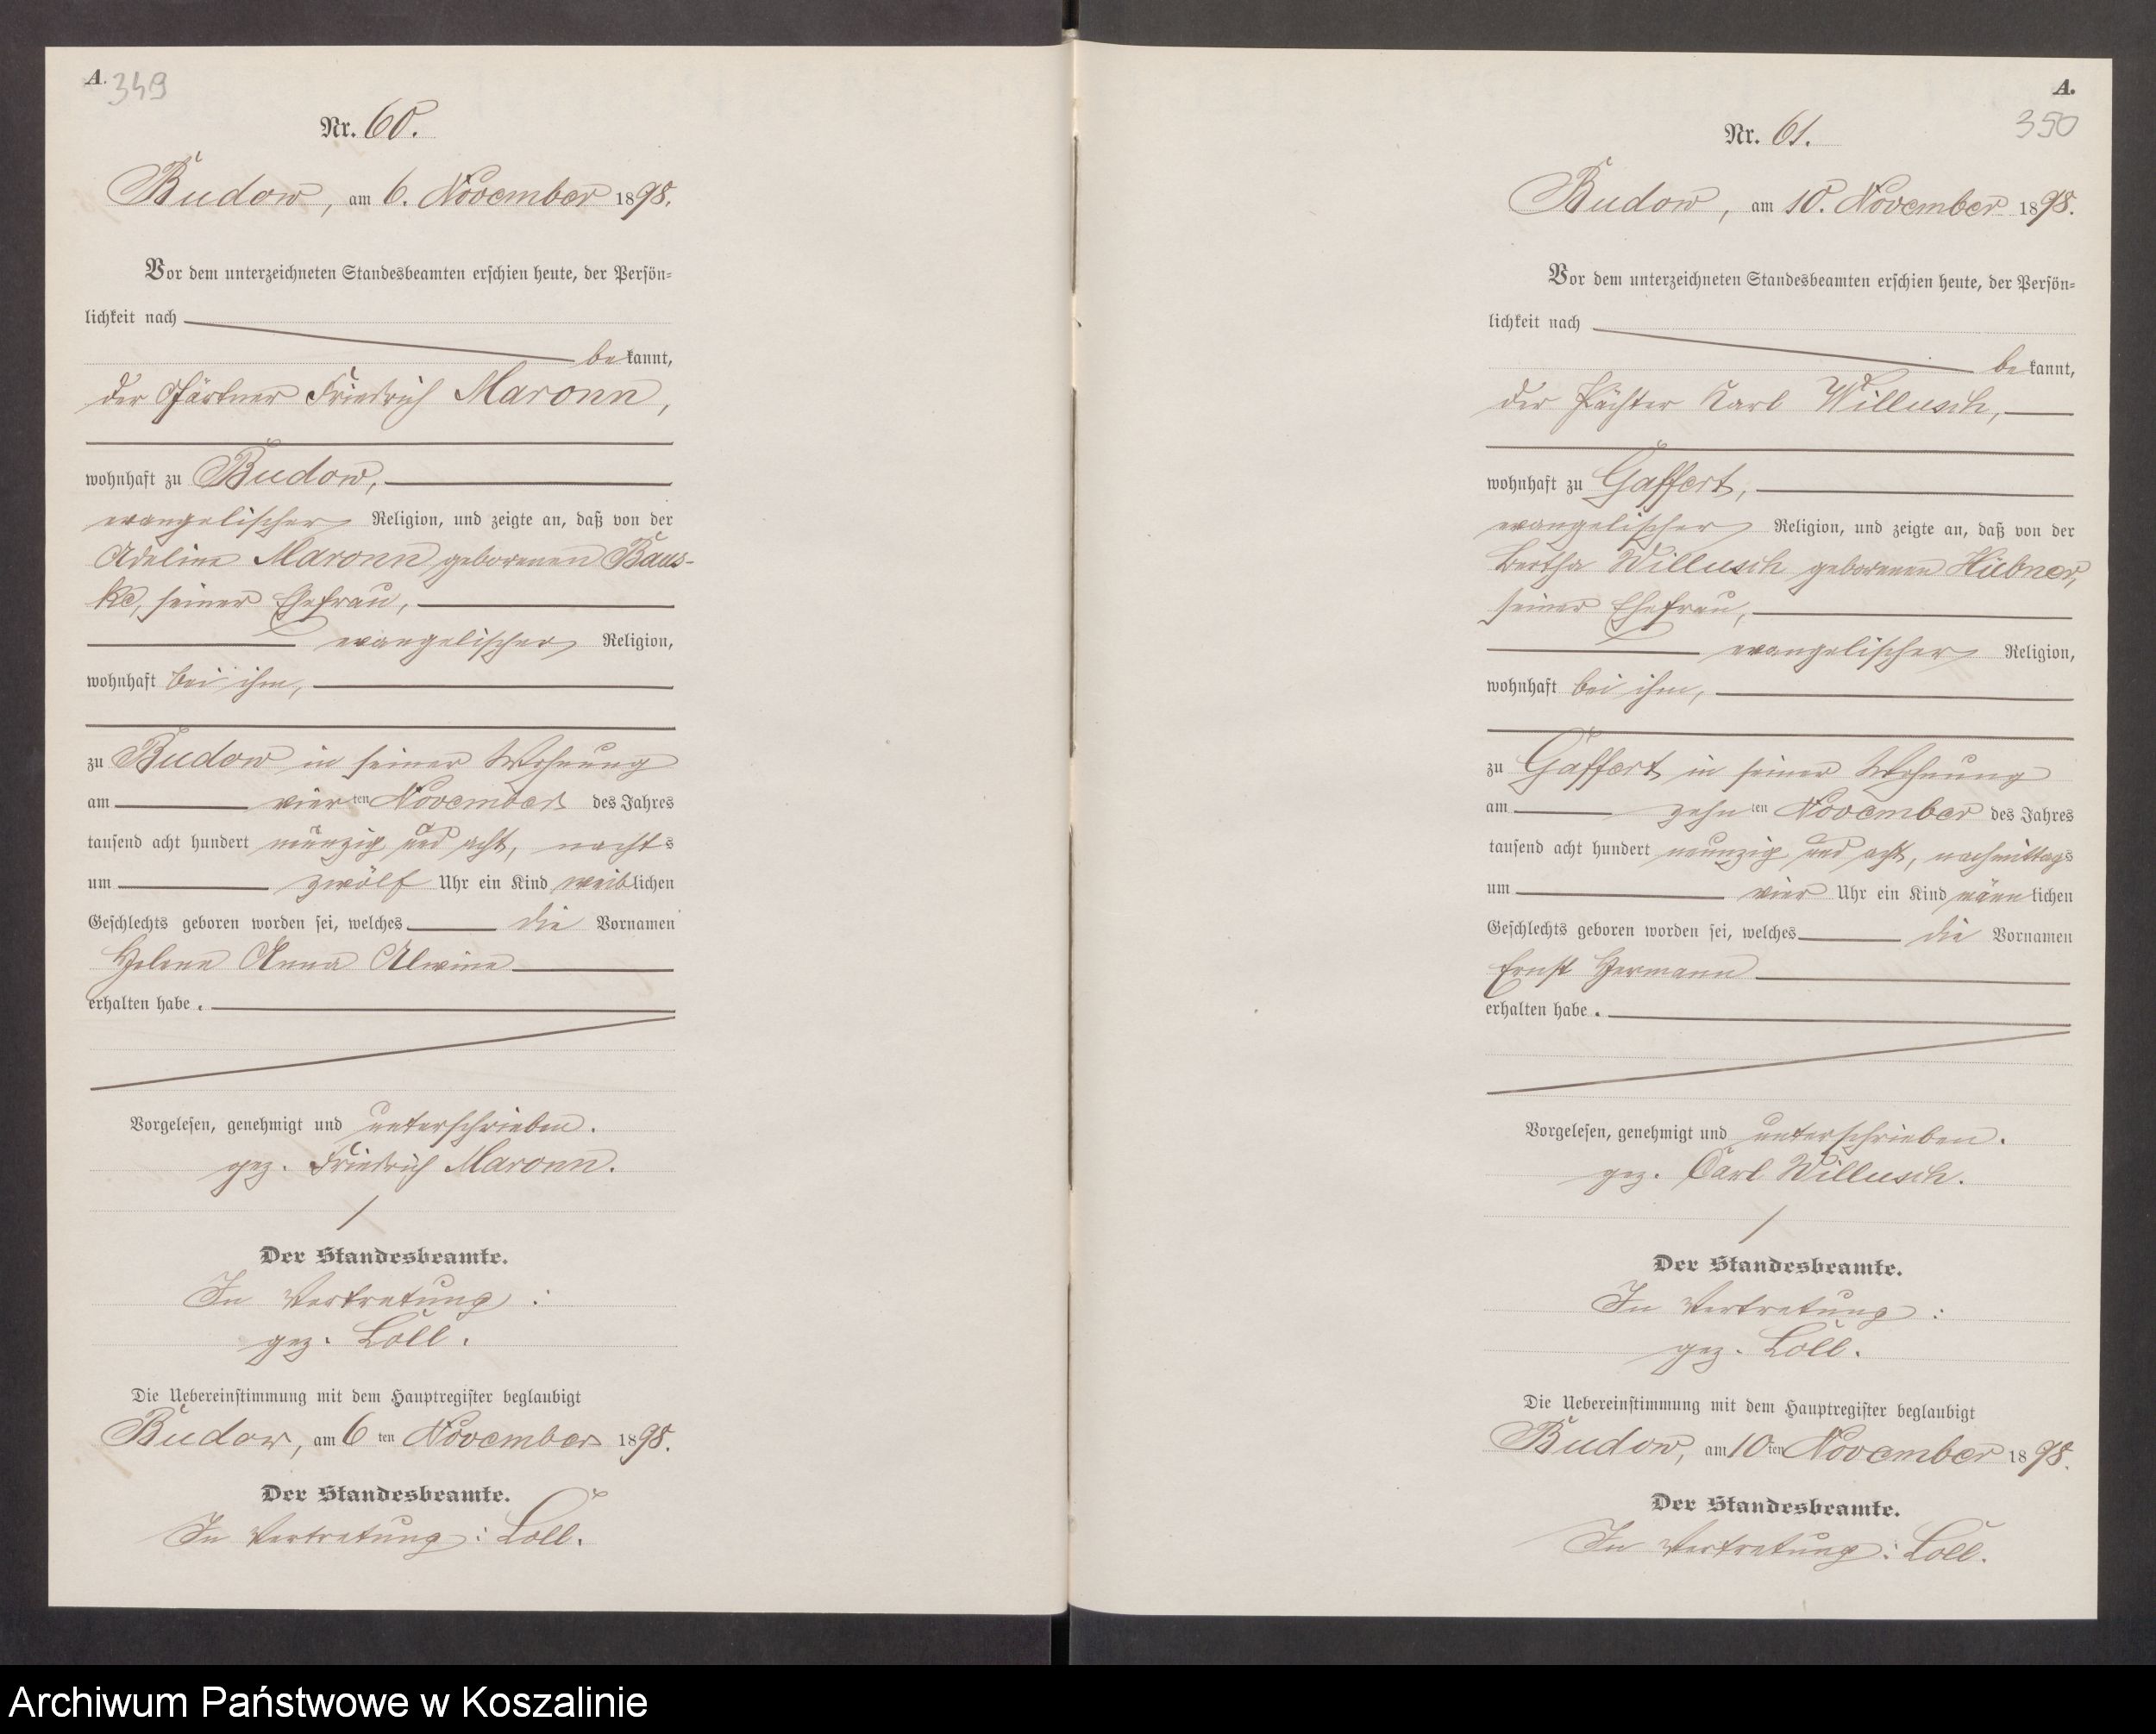 A. 349
Nr. 60.
Budow, am 6. November 1898.
Vor dem unterzeichneten Standesbeamten erschien heute, der Persön-
lichkeit nach
bekannt,
der Gärtner Friedrich Maronn,
wohnhaft zu Budow,
evangelischer Religion, und zeigte an, daß von der
Adeline Maronn geborenen Baus-
ke, seiner Ehefrau,
evangelischer Religion,
wohnhaft bei ihm,
zu Budow in seiner Wohnung
am vierten November des Jahres
tausend acht hundert neunzig und acht, nachts
um zwölf Uhr ein Kind weiblichen
Geschlechts geboren worden sei, welches die Vornamen
Helene Anna Alwine
erhalten habe.
Vorgelesen, genehmigt und unterschrieben.
gez. Friedrich Maronn.
Der Standesbeamte.
In Vertretung:
gez. Loll.
Die Uebereinstimmung mit dem Hauptregister beglaubigt
Budow, am 6ten November 1898.
Der Standesbeamte.
In Vertretung: Loll.
A.
350
Nr. 61.
Budow, am 10. November 1898.
Vor dem unterzeichneten Standesbeamten erschien heute, der Persön-
lichkeit nach
bekannt,
der Pächter Karl Willusch,
wohnhaft zu Gaffert,
evangelischer Religion, und zeigte an, daß von der
Bertha Willusch geborenen Hübner,
seiner Ehefrau,
evangelischer Religion,
wohnhaft bei ihm,
zu Gaffert in seiner Wohnung
am zehnten November des Jahres
tausend acht hundert neunzig und acht, nachmittags
um vier Uhr ein Kind männlichen
Geschlechts geboren worden sei, welches die Vornamen
Ernst Hermann
erhalten habe.
Vorgelesen, genehmigt und unterschrieben.
gez. Carl Willusch.
Der Standesbeamte.
In Vertretung:
gez. Loll.
Die Uebereinstimmung mit dem Hauptregister beglaubigt
Budow, am 10ten November 1898.
Der Standesbeamte.
In Vertretung: Loll.
Archiwum Państwowe w Koszalinie